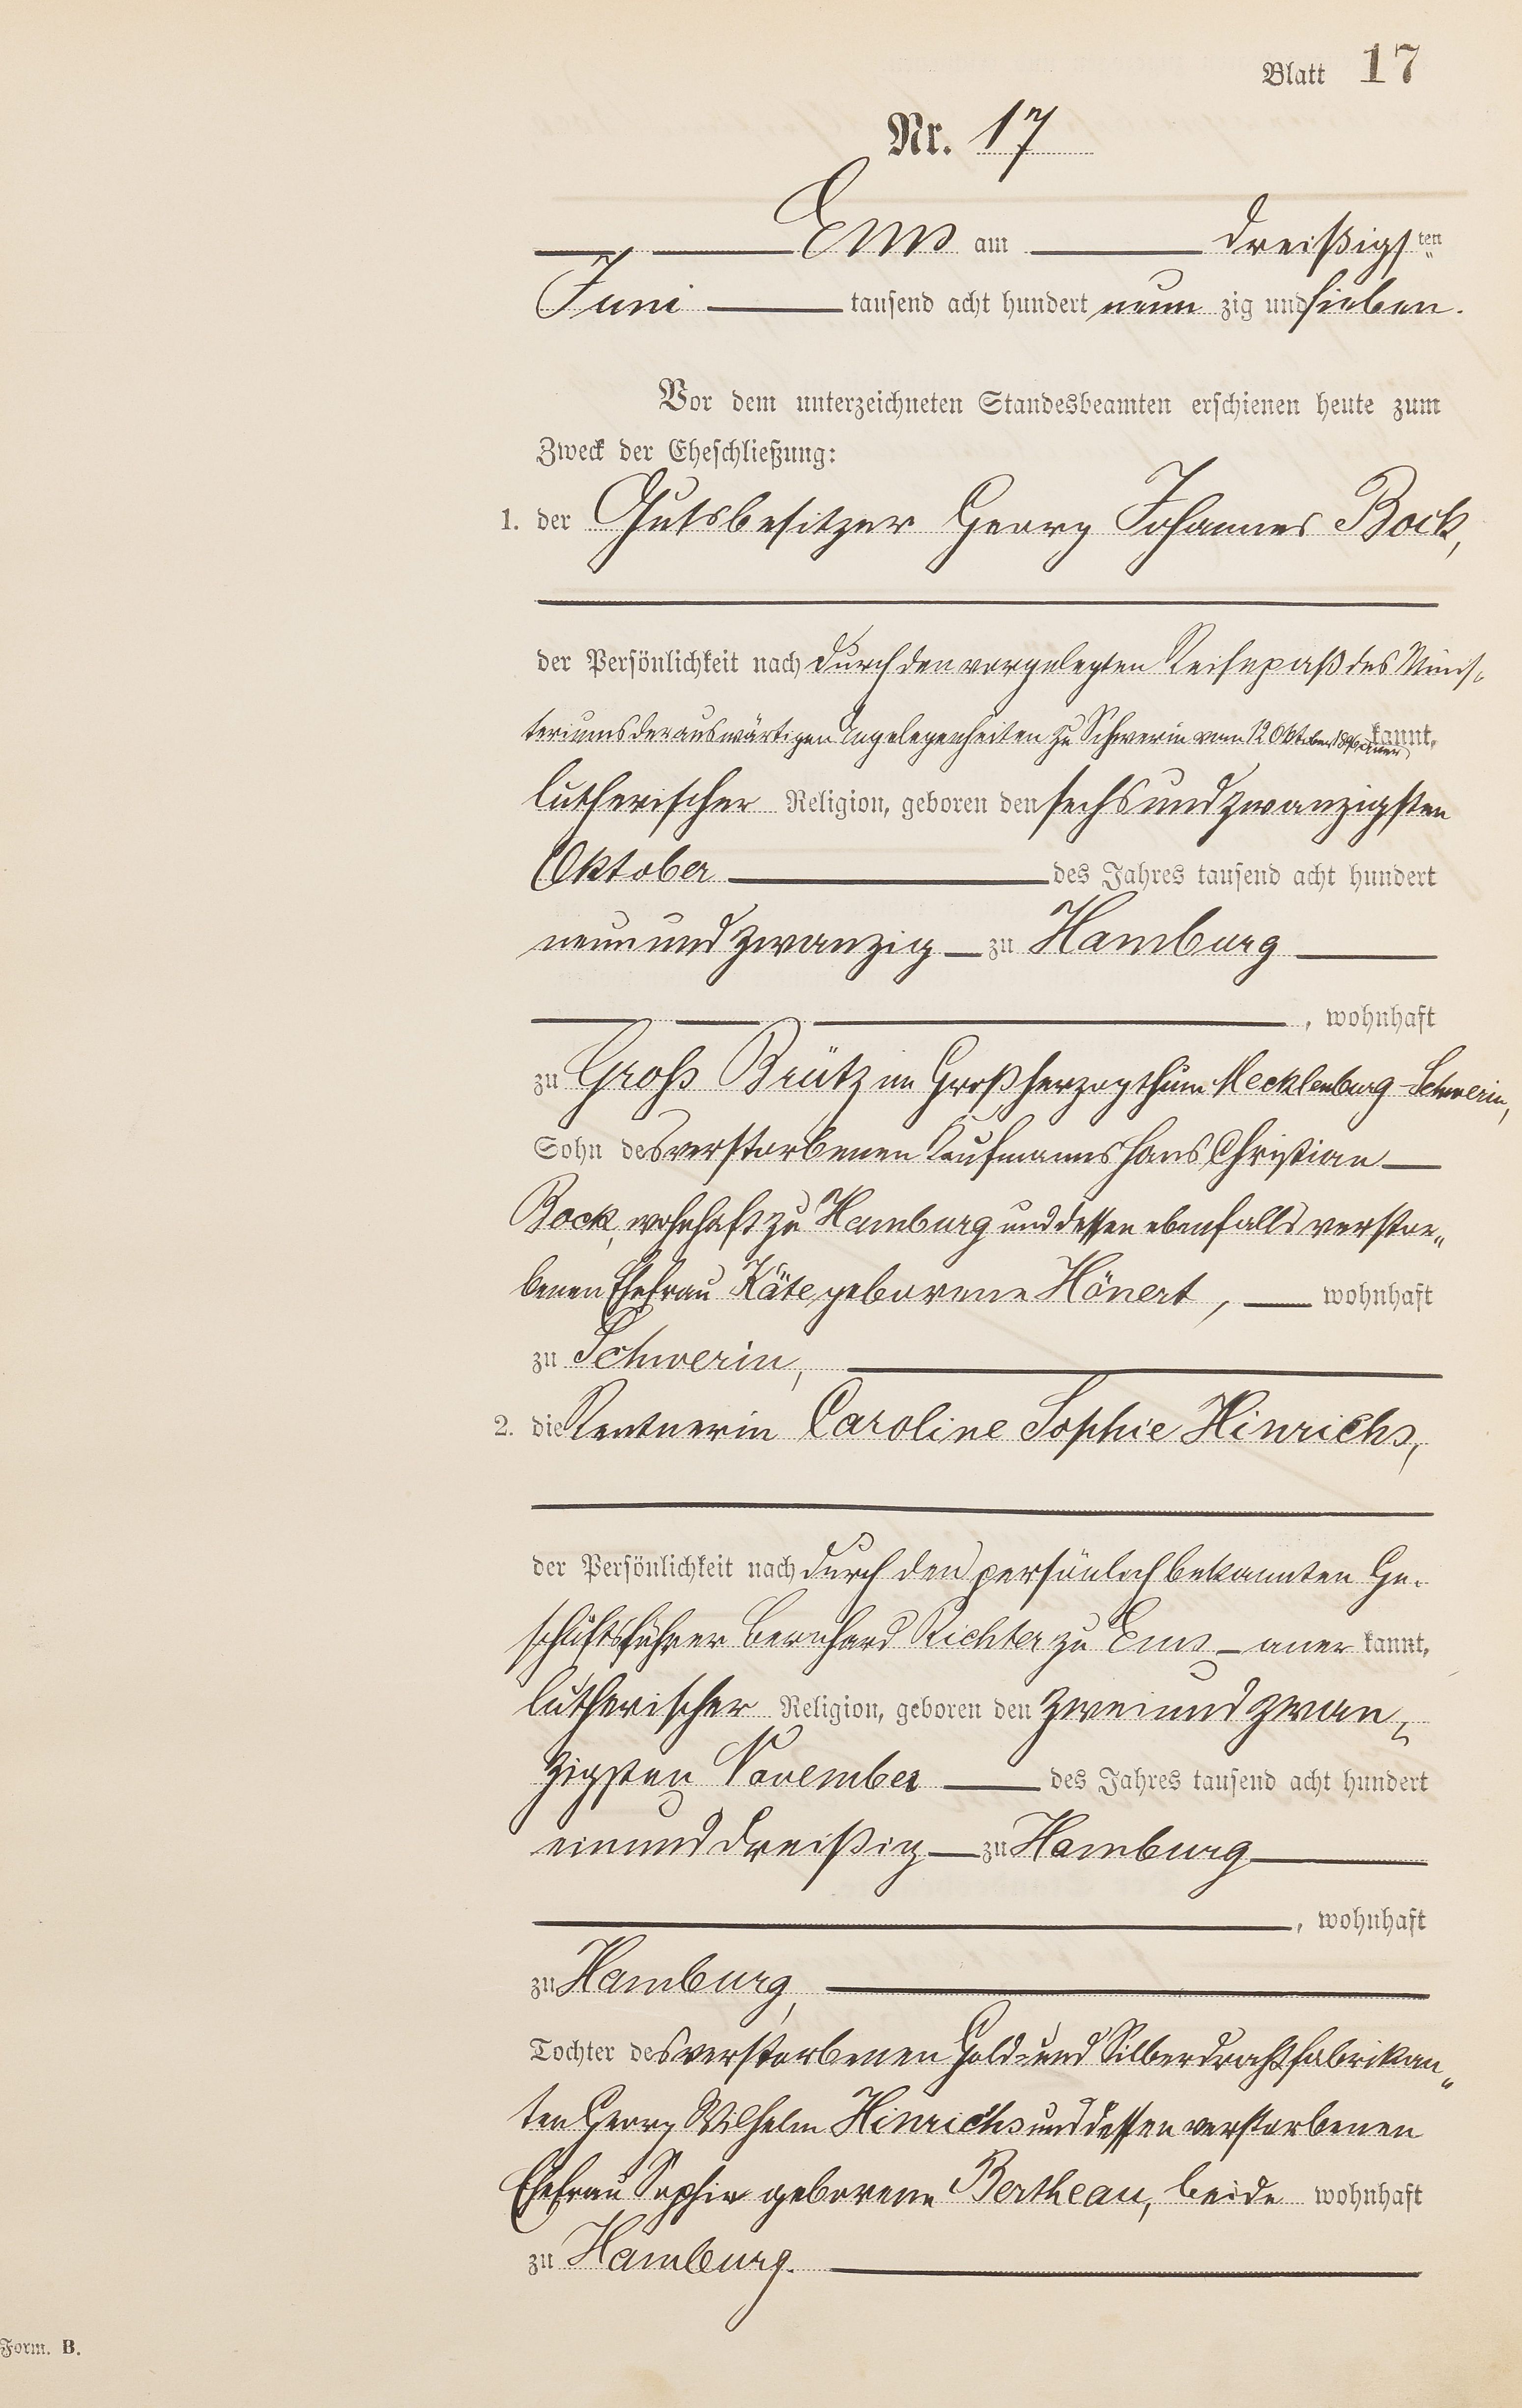 Blatt 17
Nr. 17
Ems am dreißigsten
Juni tausend acht hundert neun zig und sieben.
Vor dem unterzeichneten Standesbeamten erschienen heute zum
Zweck der Eheschließung:
1. der Gutsbesitzer Georg Johannes Bock,
der Persönlichkeit nach durch den vorgelegten Reisepaß des Minis-
teriums der auswärtigen Angelegenheiten zu Schwerin vom 12 Oktober aner kannt,
lutherischer Religion, geboren den sechs und zwanzigsten
Oktober des Jahres tausend acht hundert
neun und zwanzig zu Hamburg
, wohnhaft
zu Groß Brütz im Großherzogthum Mecklenburg-Schwerin,
Sohn des verstorbenen Kaufmanns Hans Christian
Bock, wohnhaft zu Hamburg und dessen ebenfalls verstor-
benen Ehefrau Käte geborene Hönert, wohnhaft
zu Schwerin,
2. die Rentnerin Caroline Sophie Hinrichs,
der Persönlichkeit nach durch den persönlich bekannten Ge-
schäftsführer Bernhard Richter zu Ems aner kannt,
lutherischer Religion, geboren den zwei und zwan-
zigsten November des Jahres tausend acht hundert
ein und dreißig zu Hamburg
, wohnhaft
zu Hamburg,
Tochter des verstorbenen Gold- und Silberdrahtfabrikan-
ten Georg Wilhelm Hinrichs und dessen verstorbenen
Ehefrau Sophie geborene Bertheau, beide wohnhaft
zu Hamburg.
Form. B.